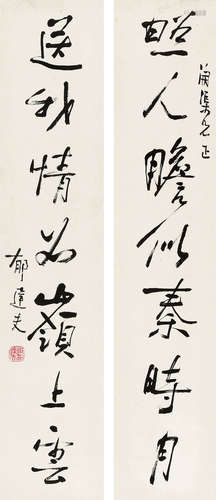 照人膽似秦時月
兄正
送我情如嶺上雲
郁達夫